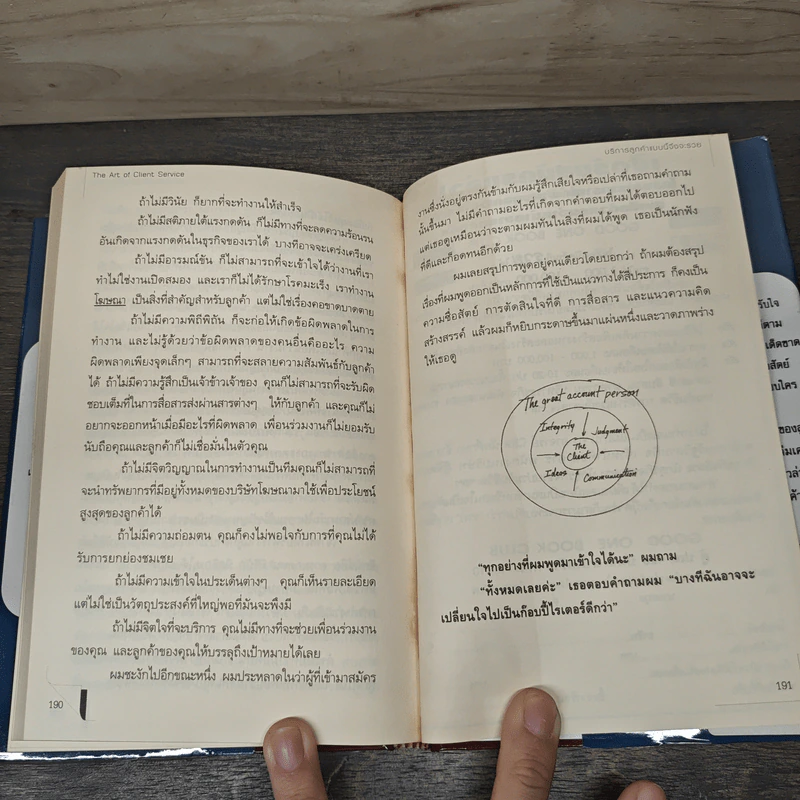 The Art of Client Service
ถ้าไม่มีวินัย ก็ยากที่จะทำงานให้สำเร็จ
ถ้าไม่มีสติภายใต้แรงกดดัน ก็ไม่มีทางที่จะลดความร้อนรน
อันเกิดจากแรงกดดันในธุรกิจของเราได้ บางทีอาจจะเคร่งเครียด
ถ้าไม่มีอารมณ์ขัน ก็ไม่สามารถที่จะเข้าใจได้ว่างานที่เรา
ทำไม่ใช่งานเปิดสมอง และเราก็ไม่ได้รักษาโรคมะเร็ง เราทำงาน
โฆษณา เป็นสิ่งที่สำคัญสำหรับลูกค้า แต่ไม่ใช่เรื่องคอขาดบาดตาย
ถ้าไม่มีความพิถีพิถัน ก็จะก่อให้เกิดข้อผิดพลาดในการ
ทำงาน และไม่รู้ด้วยว่าข้อผิดพลาดของคนอื่นคืออะไร ความ
ผิดพลาดเพียงจุดเล็กๆ สามารถที่จะสลายความสัมพันธ์กับลูกค้า
ได้ ถ้าไม่มีความรู้สึกเป็นเจ้าข้าวเจ้าของ คุณก็ไม่สามารถที่จะรับผิด
ชอบเต็มที่ในการสื่อสารส่งผ่านสารต่างๆ ให้กับลูกค้า และคุณก็ไม่
อยากจะออกหน้าเมื่อมีอะไรที่ผิดพลาด เพื่อนร่วมงานก็ไม่ยอมรับ
นับถือคุณและลูกค้าก็ไม่เชื่อมั่นในตัวคุณ
ถ้าไม่มีจิตวิญญาณในการทำงานเป็นทีมคุณก็ไม่สามารถที่
จะนำทรัพยากรที่มีอยู่ทั้งหมดของบริษัทโฆษณามาใช้เพื่อประโยชน์
สูงสุดของลูกค้าได้
ถ้าไม่มีความถ่อมตน คุณก็คงไม่พอใจกับการที่คุณไม่ได้
รับการยกย่องชมเชย
ถ้าไม่มีความเข้าใจในประเด็นต่างๆ คุณก็เห็นรายละเอียด
แต่ไม่ใช่เป็นวัตถุประสงค์ที่ใหญ่พอที่มันจะพึงมี
ถ้าไม่มีจิตใจที่จะบริการ คุณไม่มีทางที่จะช่วยเพื่อนร่วมงาน
ของคุณ และลูกค้าของคุณให้บรรลุถึงเป้าหมายได้เลย
ผมชะงักไปอีกขณะหนึ่ง ผมประหลาดใจว่าผู้ที่เข้ามาสมัคร
190
บริการลูกค้าแบบนี้ซิจะรวย
งานซึ่งนั่งอยู่ตรงกันข้ามกับผมรู้สึกเสียใจหรือเปล่าที่เธอถามคำถาม
นั้นขึ้นมา ไม่มีคำถามอะไรที่เกิดจากคำตอบที่ผมได้ตอบออกไป
แต่เธอดูเหมือนว่าจะตามผมทันในสิ่งที่ผมได้พูด เธอเป็นนักฟัง
ที่ดีและก็อดทนอีกด้วย
ผมเลยสรุปการพูดอยู่คนเดียวโดยบอกว่า ถ้าผมต้องสรุป
เรื่องที่ผมพูดออกเป็นหลักการที่ใช้เป็นแนวทางได้สี่ประการ ก็คงเป็น
ความซื่อสัตย์ การตัดสินใจที่ดี การสื่อสาร และแนวความคิด
สร้างสรรค์ แล้วผมก็หยิบกระดาษขึ้นมาแผ่นหนึ่งและวาดภาพร่าง
ให้เธอดู
The great account person
Integrity
Judgment
The
Client
Ideas
Communication
“ทุกอย่างที่ผมพูดมาเข้าใจได้นะ” ผมถาม
“ทั้งหมดเลยค่ะ” เธอตอบคำถามผม “บางทีฉันอาจจะ
เปลี่ยนใจไปเป็นก๊อบปี้ไรเตอร์ดีกว่า”
191